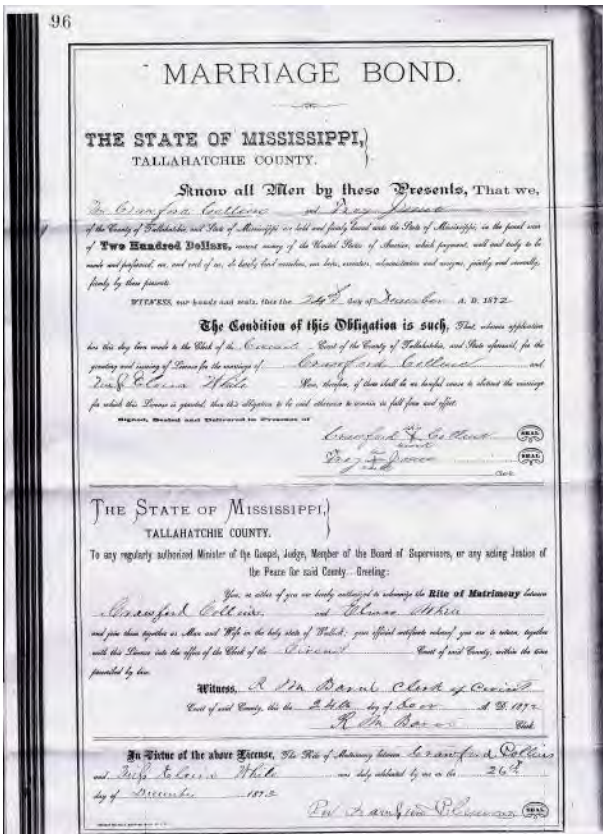 96
MARRIAGE BOND.
THE STATE OF MISSISSIPPI,
TALLAHATCHIE COUNTY.
Know all Men by these Presents, That we,
Crawford Collins and
of the County of Tallahatchie, and State of Mississippi are held and firmly bound unto the State of Mississippi, in the penal sum
of Two Hundred Dollars, current money of the United States of America, which payment, well and truly to be
made and performed, we, and each of us, do hereby bind ourselves, our heirs, executors, administrators and assigns, jointly and severally,
firmly by these presents.
WITNESS, our hands and seals, this the 24th day of December A. D. 1872
The Condition of this Obligation is such, That, whereas application
has this day been made to the Clerk of the Circuit Court of the County of Tallahatchie, and State aforesaid, for the
granting and issuing of License for the marriage of Crawford Collins and
Miss White Now, therefore, if there shall be no lawful cause to obstruct the marriage
for which this License is granted, then this obligation to be void otherwise to remain in full force and effect.
Signed, Sealed and Delivered in Presence of
Crawford X Collins SEAL
SEAL
THE STATE OF MISSISSIPPI,
TALLAHATCHIE COUNTY.
To any regularly authorized Minister of the Gospel, Judge, Member of the Board of Supervisors, or any acting Justice of
the Peace for said County—Greeting:
You, or either of you are hereby authorized to solemnize the Rite of Matrimony between
Crawford Collins and White
and join them together as Man and Wife in the holy state of Wedlock; your official certificate whereof you are to return, together
with this License into the office of the Clerk of the Circuit Court of said County, within the time
prescribed by law.
Witness, R M Clerk of Circuit
Court of said County, this the 24th day of A. D. 1872
R M Clerk
In Virtue of the above License, The Rite of Matrimony between Crawford Collins
and Miss White was duly celebrated by me on the 26th
day of December 1872
SEAL